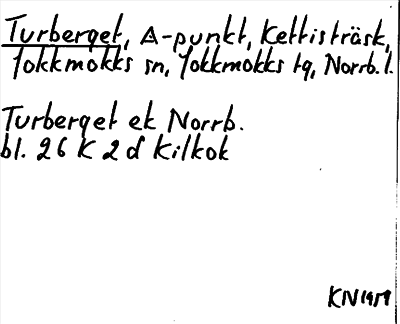 Turberget, ∆-punkt, Kettisträsk,
Jokkmokks sn, Jokkmokks tg, Norrb.l.
Turberget ek Norrb.
bl. 26 K 2 d Kilkok
KN 1959